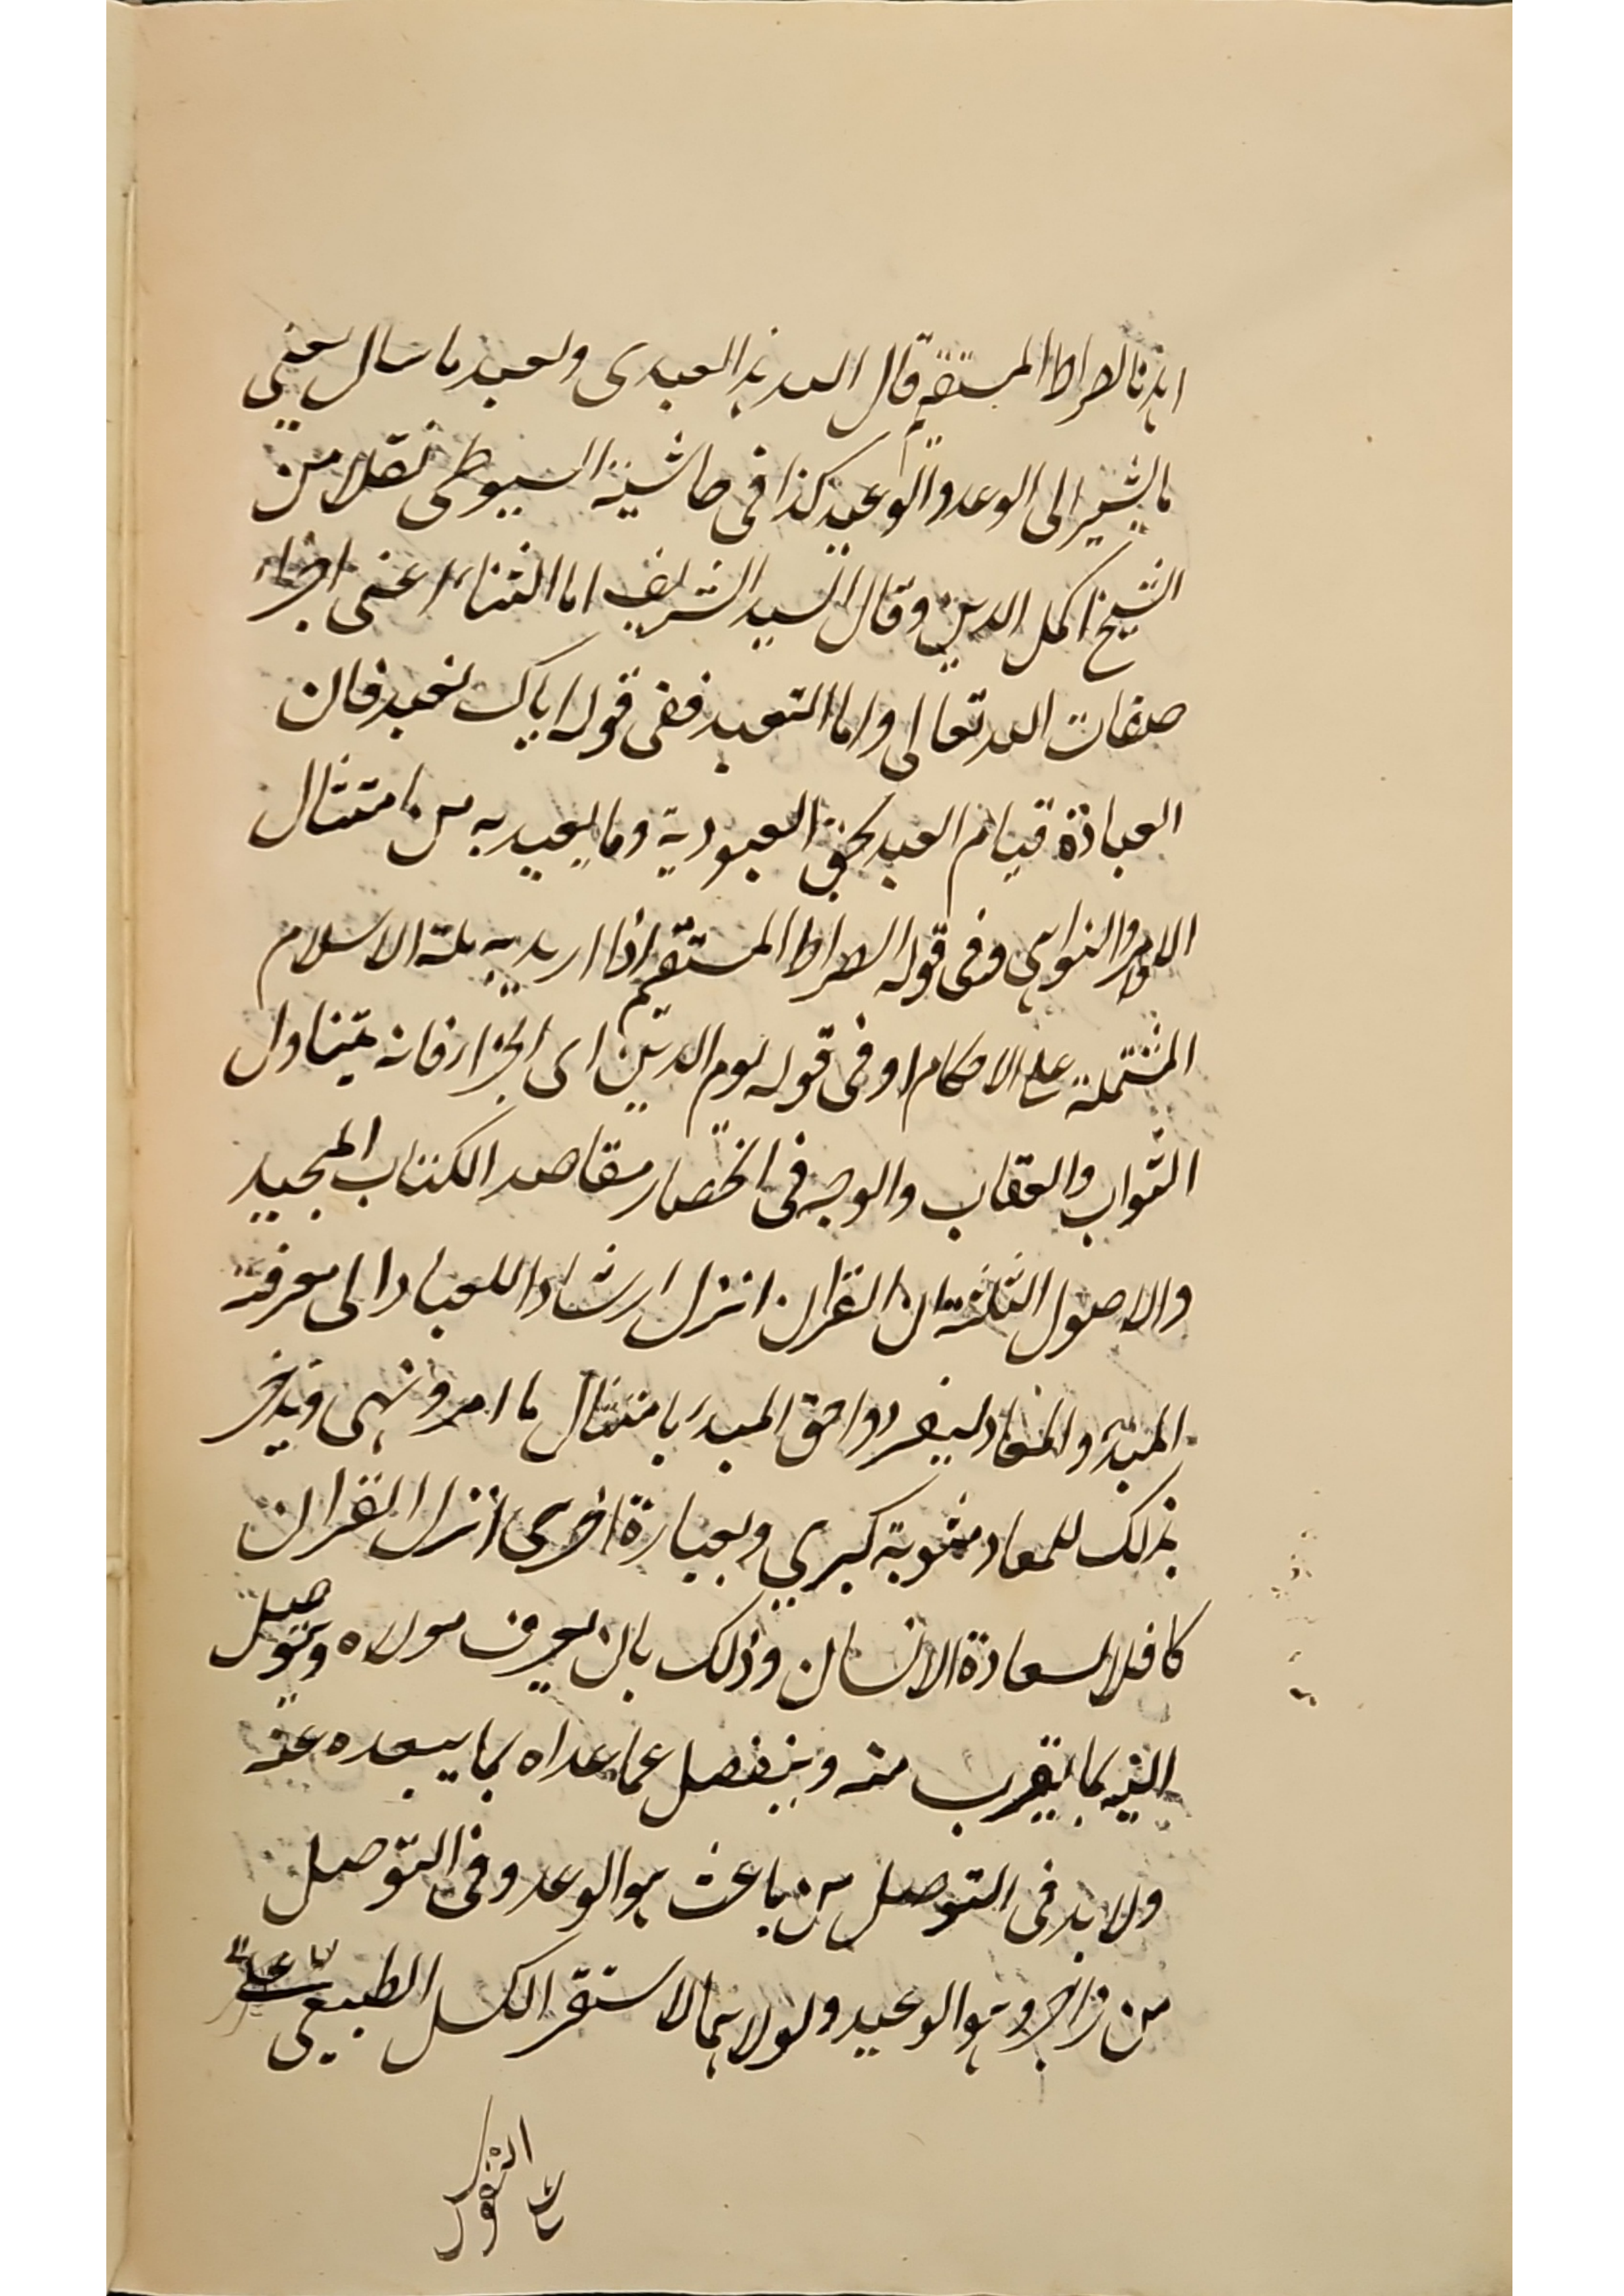 اهدنا الصراط المستقيم قال الله هذا لعبدى ولعبد ما سال يعني
ما يشير الى الوعد والوعيد كذا فى حاشية السيوطى نقلا من
الشيخ اكمل الدين وقال السيد الشريف اما الثناء اعنى اجراء
صفات الله تعالى واما التعبد ففى قوله اياك نعبد فان
العبادة قيام العبد بحق العبودية وما يعبد به من امتثال
الاوامر والنواهى وفى قوله الصراط المستقيم اذا اريد به ملة الاسلام
المشتملة على الاحكام او فى قوله يوم الدين اى الجزاء فانه يتناول
الثواب والعقاب والوجه فى انحصار مقاصد الكتاب المجيد
والاصول الثلثة ان القران انزل ارشادا للعباد الى معرفة
المبدء والمعاد ليفردوا حق المبدء بامتثال ما امر ونهى ويدخر
بذلك للمعاد مثوبة كبري وبعبارة اخرى انزل القران
كافلا لسعادة الانسان وذلك بان يعرف مولاه ويتوصل
اليه بما يقرب منه وينفصل عما عداه بما يبعده عنه
ولا بد فى التوصل من باعث هو الوعد وفى التوصل
من زاجر وهو الوعيد ولولا هما لاستقر الكسل الطبيعى